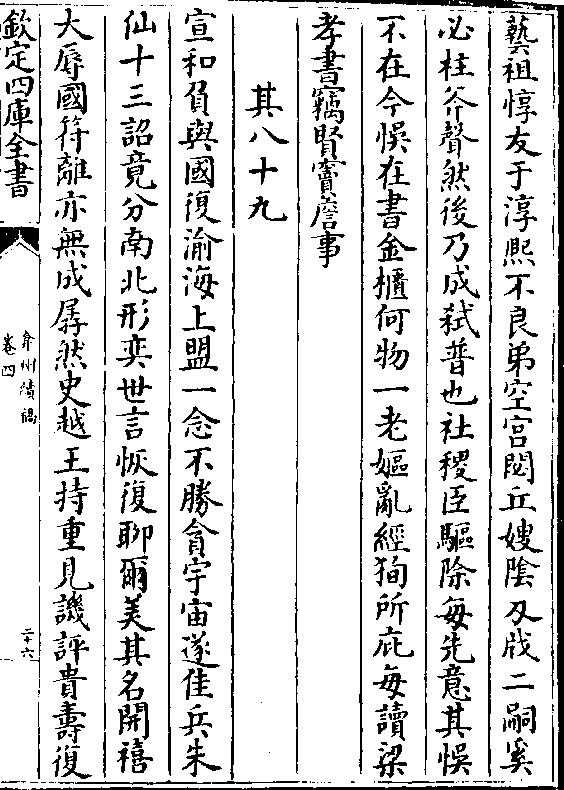 藝祖惇友于淳熙不良弟空宮閟丘嫂陰刄戕二嗣奚
必柱斧聲然後乃成弑普也社稷臣驅除毎先意其悞
不在今悞在書金櫃何物一老嫗亂經狥所庇毎讀梁
孝書竊賢竇詹事
其八十九
宣和負與國復渝海上盟一念不勝貪宇宙遂佳兵朱
仙十三詔竟分南北形奕世言恢復聊爾美其名開禧
大辱國符離亦無成孱然史越王持重見譏評貴壽復
欽定四庫全書
弇州續稿
卷四
二十六